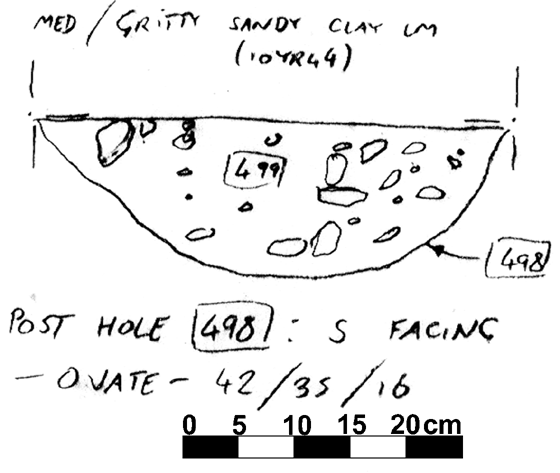 MED / GRITTY SANDY CLAY LM
(10YR44)
499
498
POST HOLE 498 : S FACING
- OVATE - 42 / 35 / 16
0 5 10 15 20 cm